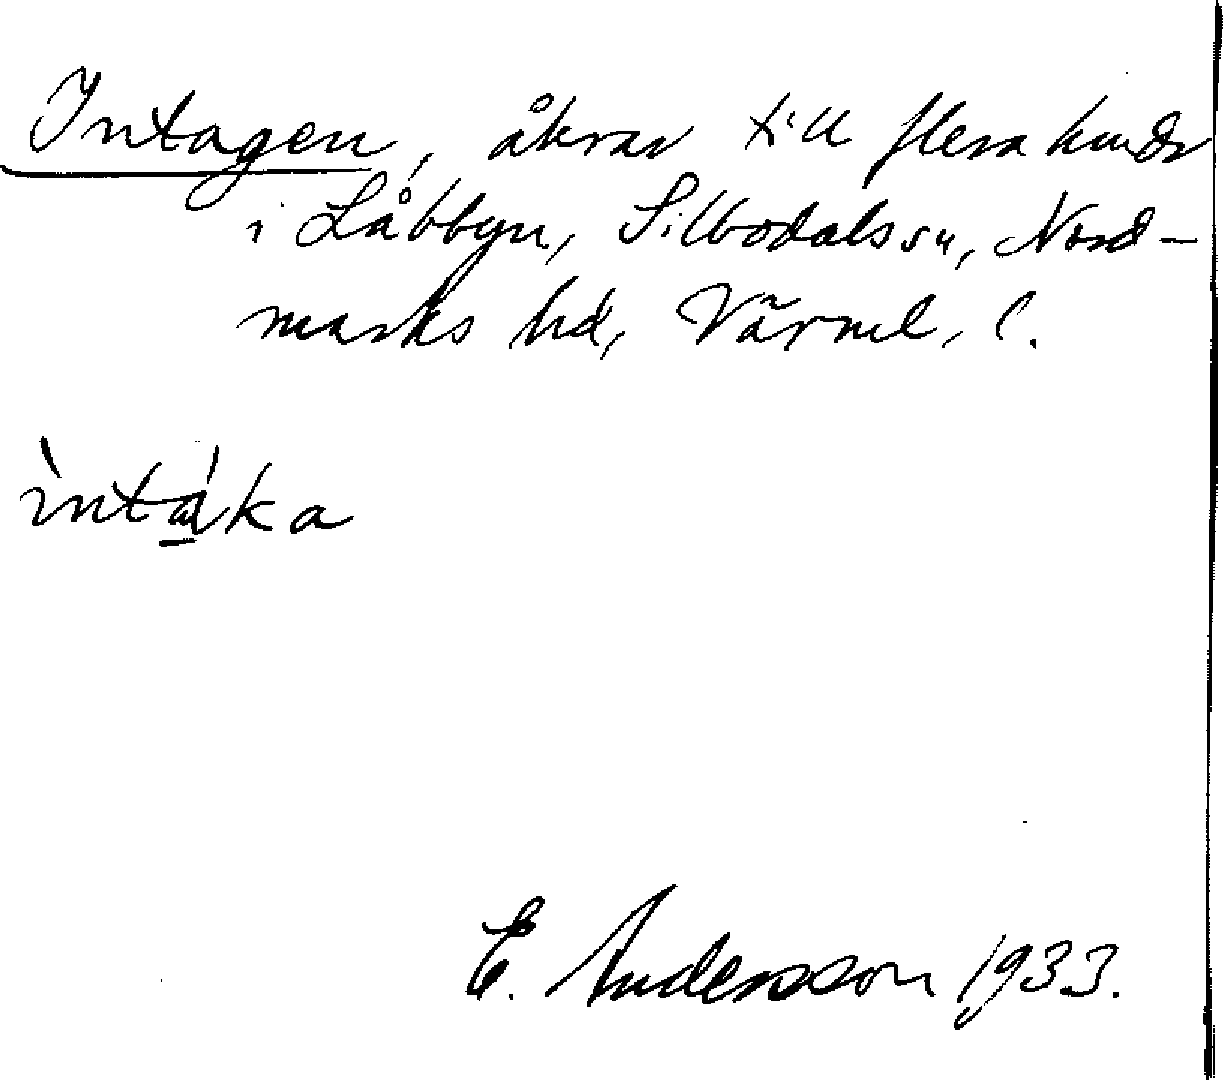 Intagen, åkrar till flera
i Låbbyn, Silbodals sn, Nord-
marks hd, Värml. l.
E. Andersson 1933.